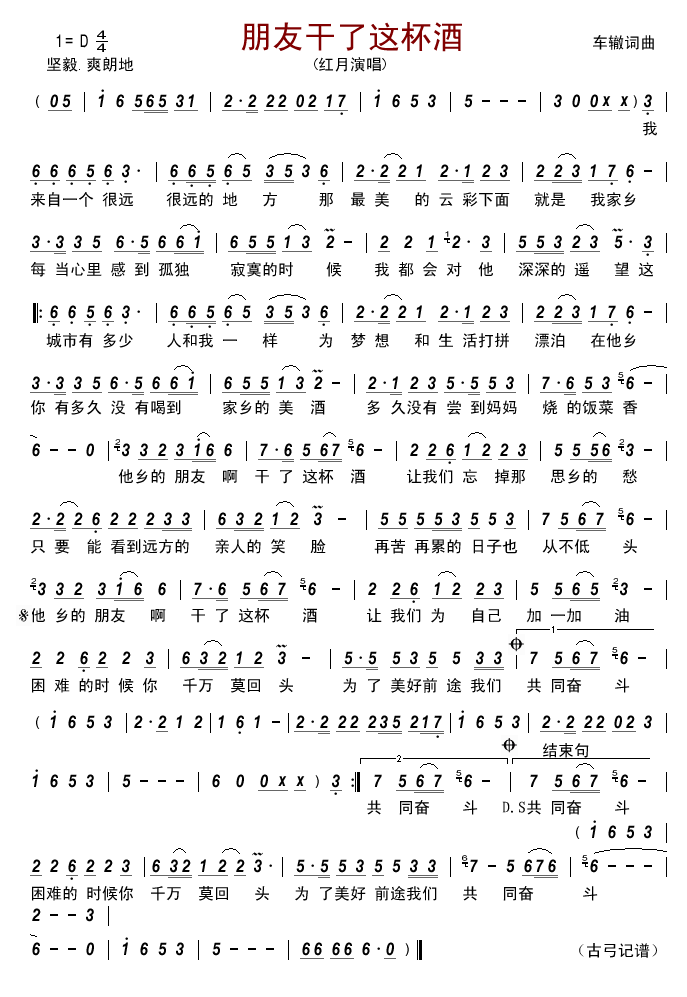 朋友干了这杯酒
1= D 4/4
车辙词曲
坚毅.爽朗地
(红月演唱)
( 05 | 1 6 565 31 | 2·2 22 02 17 | 1 6 5 3 | 5 - - - | 3 0 0x x ) 3
我
6 6 6 5 6 3· | 6 6 5 6 5 3 5 3 6 | 2·2 2 1 2·1 2 3 | 2 2 3 1 7 6 - |
来自一个 很远 很远的 地 方 那 最 美 的 云 彩下面 就是 我家乡
3·3 3 5 6·5 6 6 1 | 6 5 5 1 3 2 - | 2 2 1 1 2· 3 | 5 5 3 2 3 5· 3 |
每 当心里 感 到 孤独 寂寞的时 候 我 都 会 对 他 深深的遥 望 这
‖: 6 6 5 6 3· | 6 6 5 6 5 3 5 3 6 | 2·2 2 1 2·1 2 3 | 2 2 3 1 7 6 - |
城市有 多少 人和我 一 样 为 梦 想 和 生 活打拼 漂泊 在他乡
3·3 3 5 6·5 6 6 1 | 6 5 5 1 3 2 - | 2·1 2 3 5·5 5 5 | 7·6 5 3 5 6 - |
你 有多久 没 有喝到 家乡的 美 酒 多 久没有 尝 到妈妈 烧 的饭菜 香
6 - - 0 | 2 3 3 2 3 1 6 6 | 7·6 5 6 7 5 6 - | 2 2 6 1 2 2 3 | 5 5 5 6 2 3 - |
他乡的 朋友 啊 干 了 这杯 酒 让我们 忘 掉那 思乡的 愁
2·2 2 6 2 2 2 3 3 | 6 3 2 1 2 3 - | 5 5 5 5 3 5 5 3 | 7 5 6 7 5 6 - |
只 要 能 看到远方的 亲人的 笑 脸 再苦 再累的 日子也 从不低 头
2 3 3 2 3 1 6 6 | 7·6 5 6 7 5 6 - | 2 2 6 1 2 2 3 | 5 5 6 5 2 3 - |
𝄋他 乡的 朋友 啊 干 了 这杯 酒 让 我们 为 自己 加 一加 油
1
2 2 6 2 2 3 | 6 3 2 1 2 3 - | 5·5 5 3 5 5 3 3 | 7 5 6 7 5 6 - |
困 难 的时 候 你 千万 莫回 头 为 了 美好前 途 我们 共 同奋 斗
( 1 6 5 3 | 2·2 1 2 | 1 6 1 - | 2·2 22 235 217 | 1 6 5 3 | 2·2 22 02 3 |
结束句
2
1 6 5 3 | 5 - - - | 6 0 0 x x ) 3 :‖ 7 5 6 7 5 6 - | 7 5 6 7 5 6 - |
共 同奋 斗 D.S共 同奋 斗
( 1 6 5 3 |
2 2 6 2 2 3 | 6 32 1 2 2 3· | 5·5 5 3 5 5 3 3 | 6 7 - 5 676 | 5 6 - - - |
困难的 时候你 千万 莫回 头 为 了美好 前途我们 共 同奋 斗
2 - - 3 |
6 - - 0 | 1 6 5 3 | 5 - - - | 66 66 6·0 ) ‖
（古弓记谱）